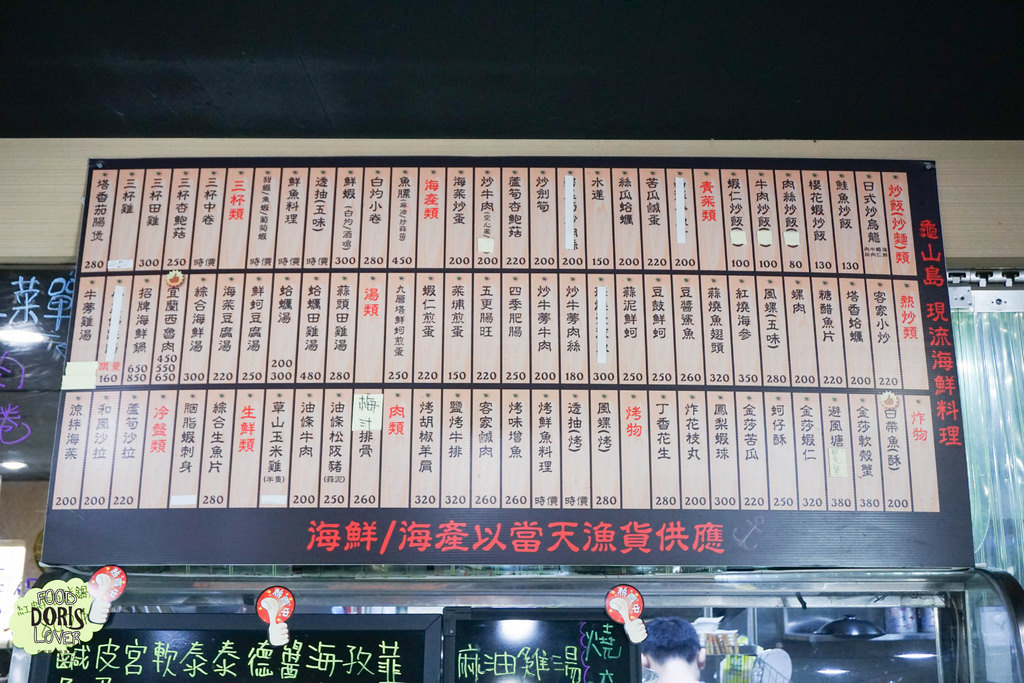 龜山島 現流海鮮料理
炒飯(炒麵)類
日式炒烏龍
鮭魚炒飯 130
櫻花蝦炒飯 130
肉絲炒飯 80
牛肉炒飯 100
蝦仁炒飯 100
青菜類
200
苦瓜鹹蛋 220
絲瓜蛤蠣 200
水蓮 150
200
炒劍筍 200
蘆筍杏鮑菇 220
炒牛肉(空心菜) 200
海菜炒蛋 200
海產類
魚膘(麻油/炒蒜苗) 450
白灼小卷 280
鮮蝦(白灼/酒嗆) 300
透抽(五味) 時價
鮮魚料理 時價
時價
三杯類
三杯中卷 時價
三杯杏鮑菇 250
三杯田雞 300
三杯雞
塔香茄腸煲 280
熱炒類
客家小炒 220
塔香蛤蠣 200
糖醋魚片 220
螺肉 200
風螺(五味) 280
紅燒海參 340
蒜燒魚翅頭 320
豆醬鯊魚 260
豆鼓鮮蚵 250
蒜泥鮮蚵 250
300
炒牛蒡肉絲 180
炒牛蒡牛肉 200
四季肥腸 250
五更腸旺 220
菜埔煎蛋 150
蝦仁煎蛋 220
九層塔鮮蚵煎蛋 250
湯類
蒜頭田雞湯 280
蛤蠣田雞湯 480
蛤蠣湯 200 300
鮮蚵豆腐湯 250
海菜豆腐湯 220
綜合海鮮湯 300
宜蘭西魯肉 450 550 650
招牌海鮮鍋 650 850
限量 160
牛蒡雞湯
炸物
白帶魚(酥) 200
金莎軟殼蟹 380
避風塘 380
金莎蝦仁 320
蚵仔酥 250
金莎苦瓜 220
鳳梨蝦球 300
炸花枝丸 200
丁香花生 280
烤物
風螺(烤) 280
透抽(烤) 時價
烤鮮魚料理 時價
烤味增魚 260
客家鹹肉 260
鹽烤牛排 320
烤胡椒羊肩 320
肉類
梅汁排骨 260
油條松阪豬(蒜泥) 250
油條牛肉 200
草山玉米雞(半隻)
生鮮類
綜合生魚片 280
胭脂蝦刺身
冷盤類
蘆筍沙拉 220
和風沙拉 200
涼拌海菜 200
海鮮/海產以當天漁貨供應
菜單
卷
鹹皮宮軟泰泰德醬海孜菲
麻油雞湯
燒
FOOD
DORIS
LOVER